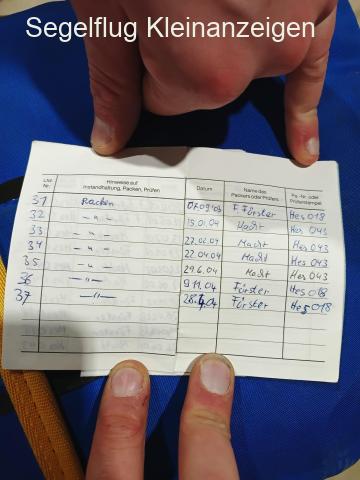 Segelflug Kleinanzeigen
Lfd. Nr. Hinweise auf Instandhaltung, Packen, Prüfen Datum Name des Packers oder Prüfers Pa.-Nr. oder Prüferstempel
31 Packen 01.09.03 F. Förster Hes 018
32 - " - 15.01.04 Macht Hes 043
33 - " - 27.02.04 Macht Hes 043
34 - " - 22.04.04 Macht Hes 043
35 - " - 29.6.04 Macht Hes 043
36 - " - 9.11.04 Förster Hes 018
37 - " - Förster Hes 018